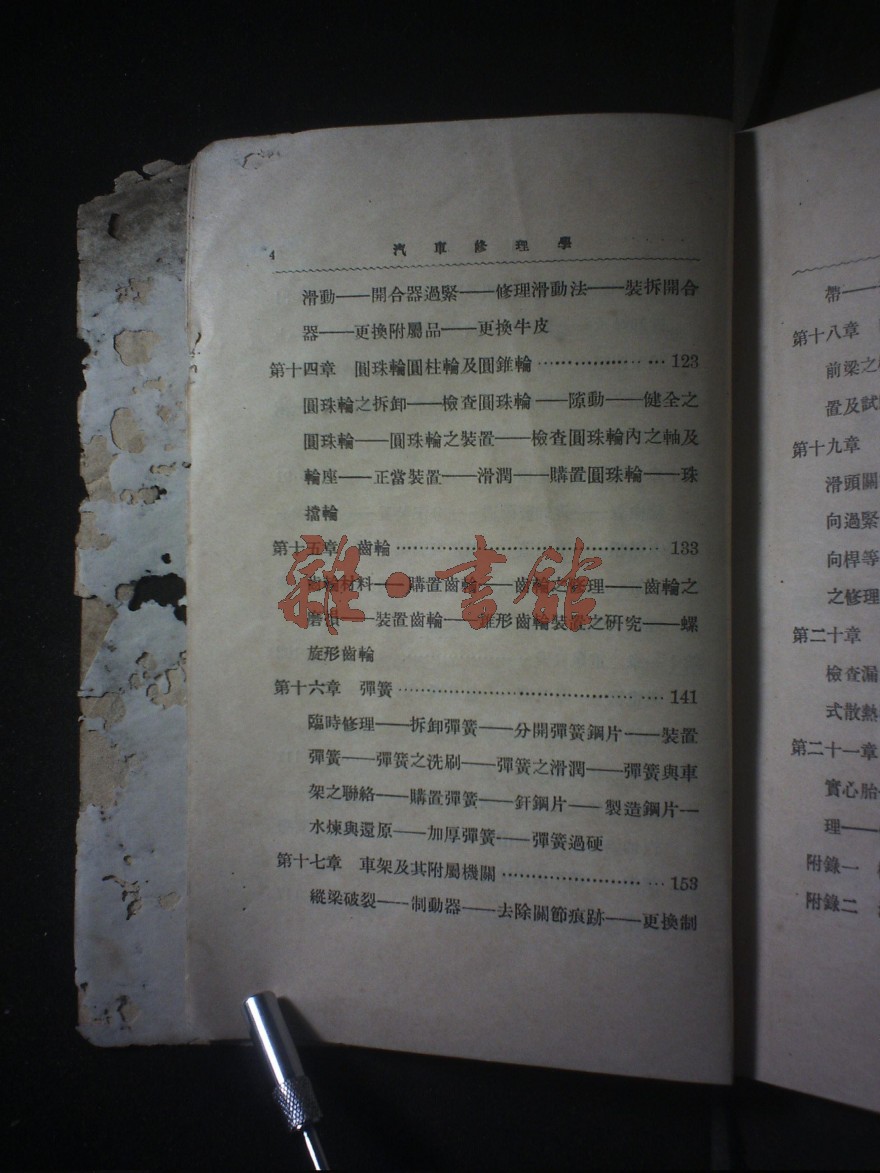 4 汽車修理學
滑動——開合器過緊——修理滑動法——裝拆開合
器——更換附屬品——更換牛皮
第十四章 圓珠輪圓柱輪及圓錐輪……………… …123
圓珠輪之拆卸——檢查圓珠輪——隙動——健全之
圓珠輪——圓珠輪之裝置——檢查圓珠輪內之軸及
輪座——正當裝置——滑潤——購置圓珠輪——珠
擋輪
第十五章 齒輪……………………………………… 133
齒輪材料——購置齒輪——齒輪之修理——齒輪之
磨損——裝置齒輪——錐形齒輪裝置之研究——螺
旋形齒輪
第十六章 彈簧…………………………………… …141
臨時修理——拆卸彈簧——分開彈簧鋼片——裝置
彈簧——彈簧之洗刷——彈簧之滑潤——彈簧與車
架之聯絡——購置彈簧——釬鋼片——製造鋼片—
水煉與還原——加厚彈簧——彈簧過硬
第十七章 車架及其附屬機關…………………… …153
縱梁破裂——制動器——去除關節痕跡——更換制
雜·書館
帶—
第十八章
前梁之
置及試
第十九章
滑頭關
向過緊
向桿等
之修理
第二十章
檢查漏
式散熱
第二十一章
實心胎
理——
附錄一
附錄二